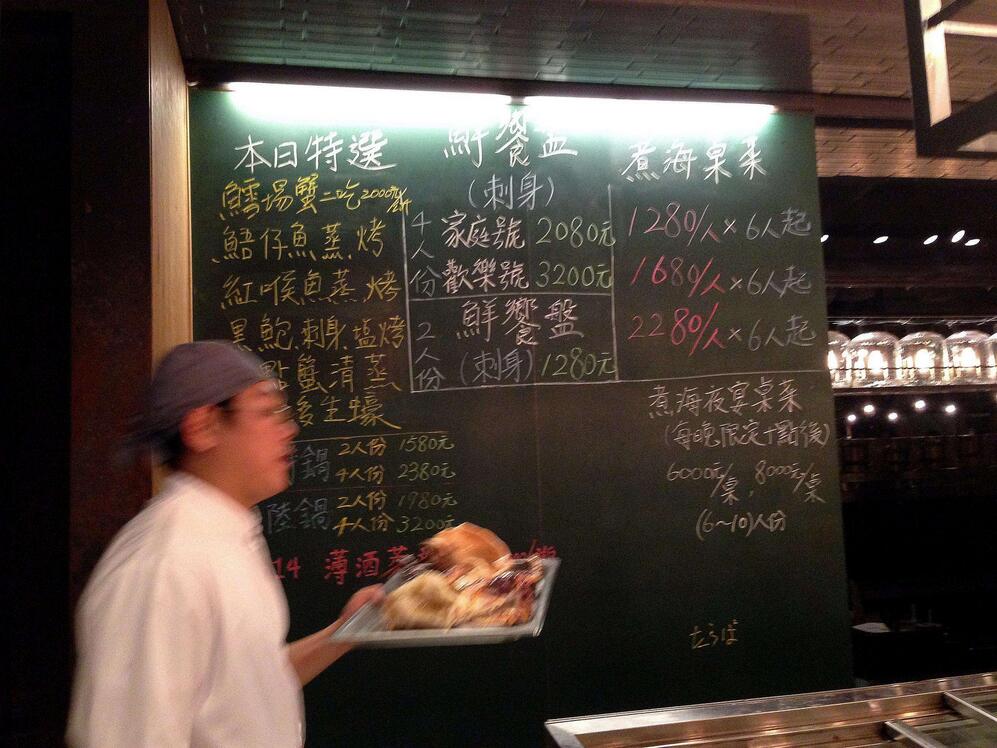 本日特選
鱈場蟹二吃2000元/斤
鯃仔魚蒸.烤
紅喉魚蒸.烤
黑鮑.刺身.塩烤
點蟹清蒸
生蠔
鍋 2人份 1580元
4人份 2380元
陸鍋 2人份 1980元
4人份 3200元
14 薄酒
鮮饗盤
(刺身)
4人份
家庭號 2080元
歡樂號 3200元
鮮饗盤
2人份
(刺身) 1280元
煮海桌菜
1280/人×6人起
1680/人×6人起
2280/人×6人起
煮海夜宴桌菜
(每晚限定十點後)
6000元/桌, 8000元/桌
(6~10)人份
たらば